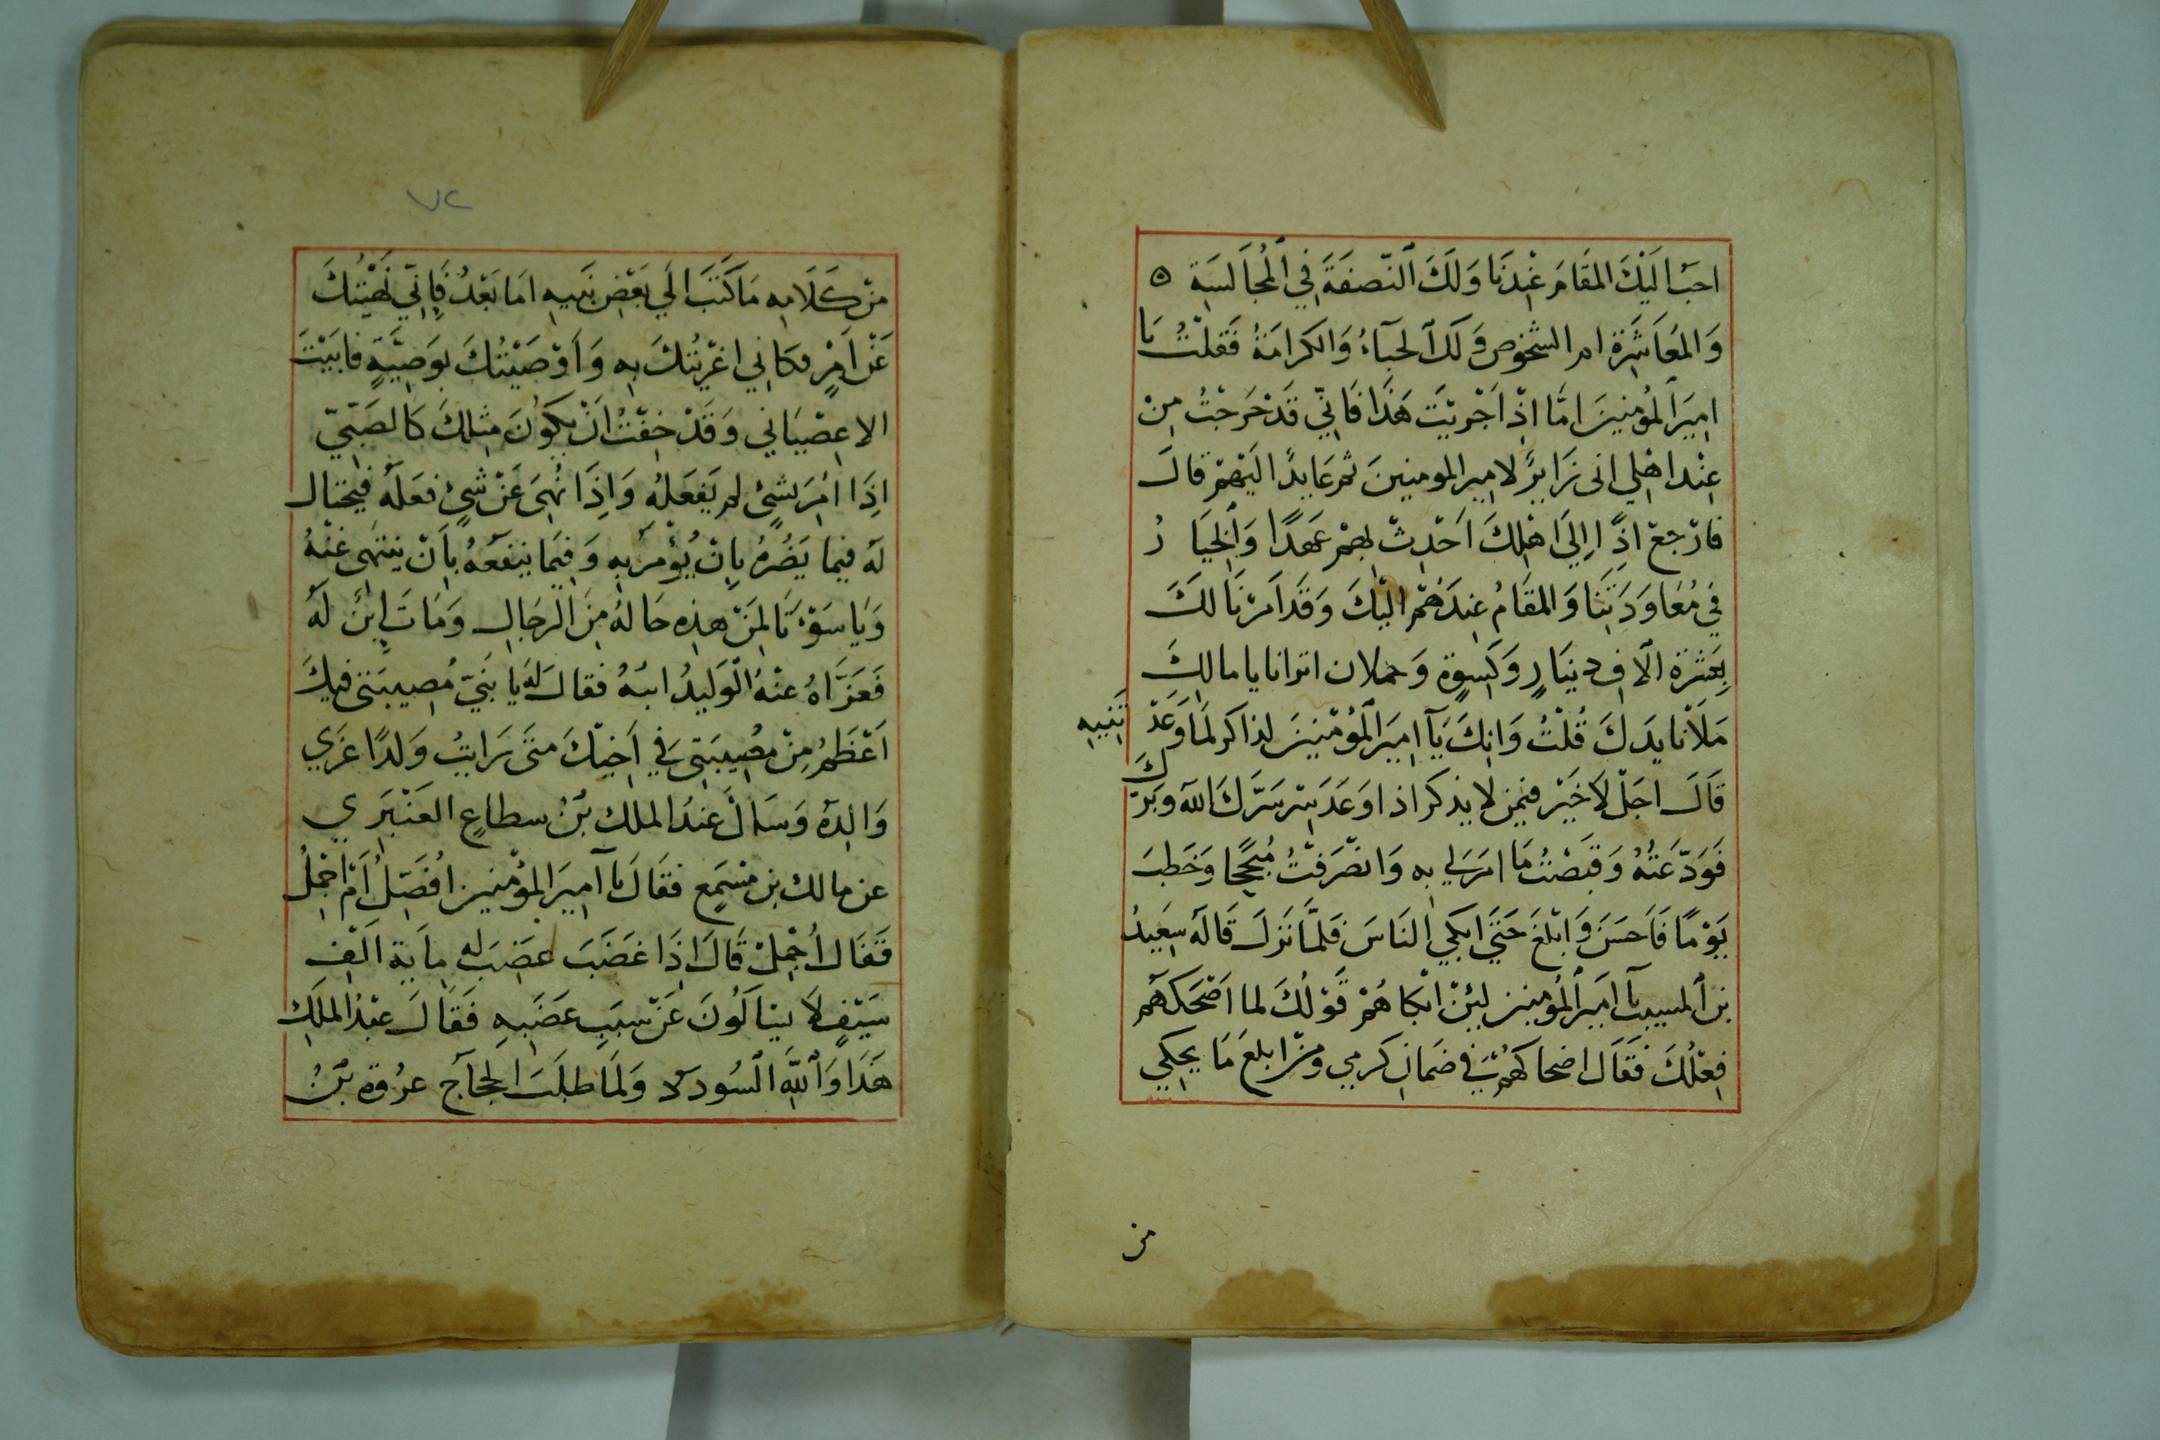 احب اليك المقام عندنا ولك النصفة في المجالسة ه
والمعاشرة ام الشخوص ولك الحباء والكرامة فقلت يا
امير المؤمنين اما اذ اجريت هذا فاني قد خرجت من
عند اهلي انى زاير لامير المومنين ثم عايد اليهم قال
فارجع اذا الى اهلك احدث بهم عهدا والخيار
في معاودتنا والمقام عندهم اليك وقد امرنا لك
بعشرة الاف دينار وكسوة وحملان اترانا يا مالك
ملأنا يدك قلت وانك يآ امير المؤمنين لذاكر لما وعد
تنبيه
قال اجل لا خير فيمن لا يذكر اذا وعد سر سرك الله وبرك
فودعته وقبضت ما امر لي به وانصرفت وخطب
يوما فاحسن وابلغ حتى ابكي الناس فلما نزل قال له سعيد
بن المسيب يآ امير المؤمنين لئن ابكاهم قولك لما اضحكهم
فعلك فقال اضحاكهم في ضمان كرمي ومن ابلغ ما يحكي
من
٧٢
من كلامه ما كتب الي بعض بنيه اما بعد فاني نهيتك
عن امر فكاني اغريتك به واوصيتك بوصية فابيت
الا عصياني وقد خفت ان يكون مثلك كالصبي
اذا امر بشئ لم يفعله واذا نهى عن شئ فعله فيحتال
له فيما يضره بان يؤمر به وفيما ينفعه بان ينتهى عنه
ويا سوءتا لمن هذه حاله من الرجال ومات ابن له
فعزاه عنه الوليد ابنه فقال له يا بني مصيبتى فيك
اعظم من مصيبتى في اخيك متى رايت ولدا عزي
والده وسال عبد الملك بن سطاع العنبري
عن مالك بن مسمع فقال يآ امير المؤمنين افصل ام اجمل
فقال اجمل قال اذا غضب غضب له ماية الف
سيف لا يسألون عن سبب غضبه فقال عبد الملك
هذا والله السودد ولما طلب الحجآج عروة بن